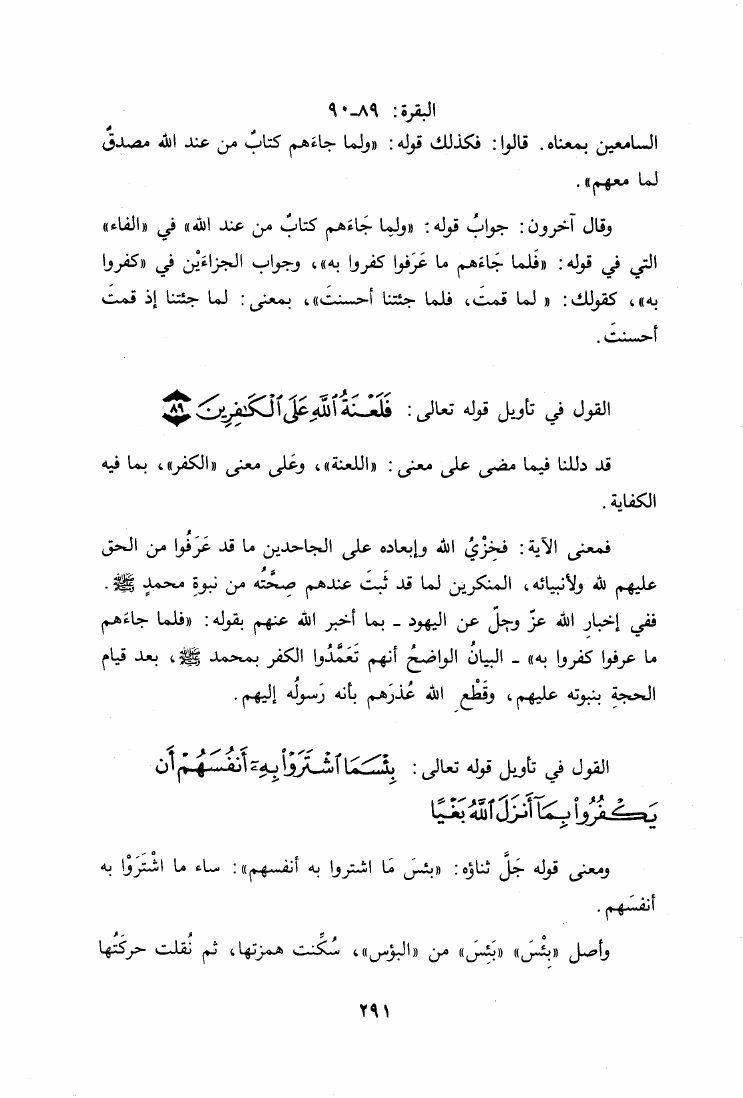 البقرة: ٨٩ـ٩٠
السامعين بمعناه. قالوا: فكذلك قوله: «ولما جاءَهم كتابٌ من عند الله مصدقٌ
لما معهم».
وقال آخرون: جوابُ قوله: «ولما جَاءَهم كتابٌ من عند الله» في «الفاء»
التي في قوله: «فَلما جَاءَهم ما عَرَفوا كفروا به»، وجواب الجزاءَيْن في «كفروا
به»، كقولك: « لما قمتَ، فلما جئتنا أحسنتَ»، بمعنى: لما جئتنا إذ قمتَ
أحسنتَ.
القول في تأويل قوله تعالى: فَلَعْنَةُ ٱللَّهِ عَلَى ٱلْكَـٰفِرِينَ ٨٩
قد دللنا فيما مضى على معنى: «اللعنة»، وعَلى معنى «الكفر»، بما فيه
الكفاية.
فمعنى الآية: فخِزْيُ الله وإبعاده على الجاحدين ما قد عَرَفُوا من الحق
عليهم لله ولأنبيائه، المنكرين لما قد ثَبتَ عندهم صِحَّتُه من نبوةِ محمدٍ ﷺ.
ففي إخبارِ الله عزّ وجلّ عن اليهود ـ بما أخبر الله عنهم بقوله: «فلما جاءَهم
ما عرفوا كفروا به» ـ البيانُ الواضحُ أنهم تَعَمَّدُوا الكفر بمحمد ﷺ، بعد قيام
الحجةِ بنبوته عليهم، وقَطْعِ الله عُذرَهم بأنه رَسولُه إليهم.
القول في تأويل قوله تعالى: بِئْسَمَا ٱشْتَرَوْا۟ بِهِۦٓ أَنفُسَهُمْ أَن
يَكْفُرُوا۟ بِمَآ أَنزَلَ ٱللَّهُ بَغْيًا
ومعنى قوله جَلَّ ثناؤه: «بئسَ مَا اشتروا به أنفسهم»: ساء ما اشْتَرَوْا به
أنفسَهم.
وأصل «بِئْسَ» «بَئِسَ» من «البؤس»، سُكِّنت همزتها، ثم نُقلت حركَتُها
٢٩١